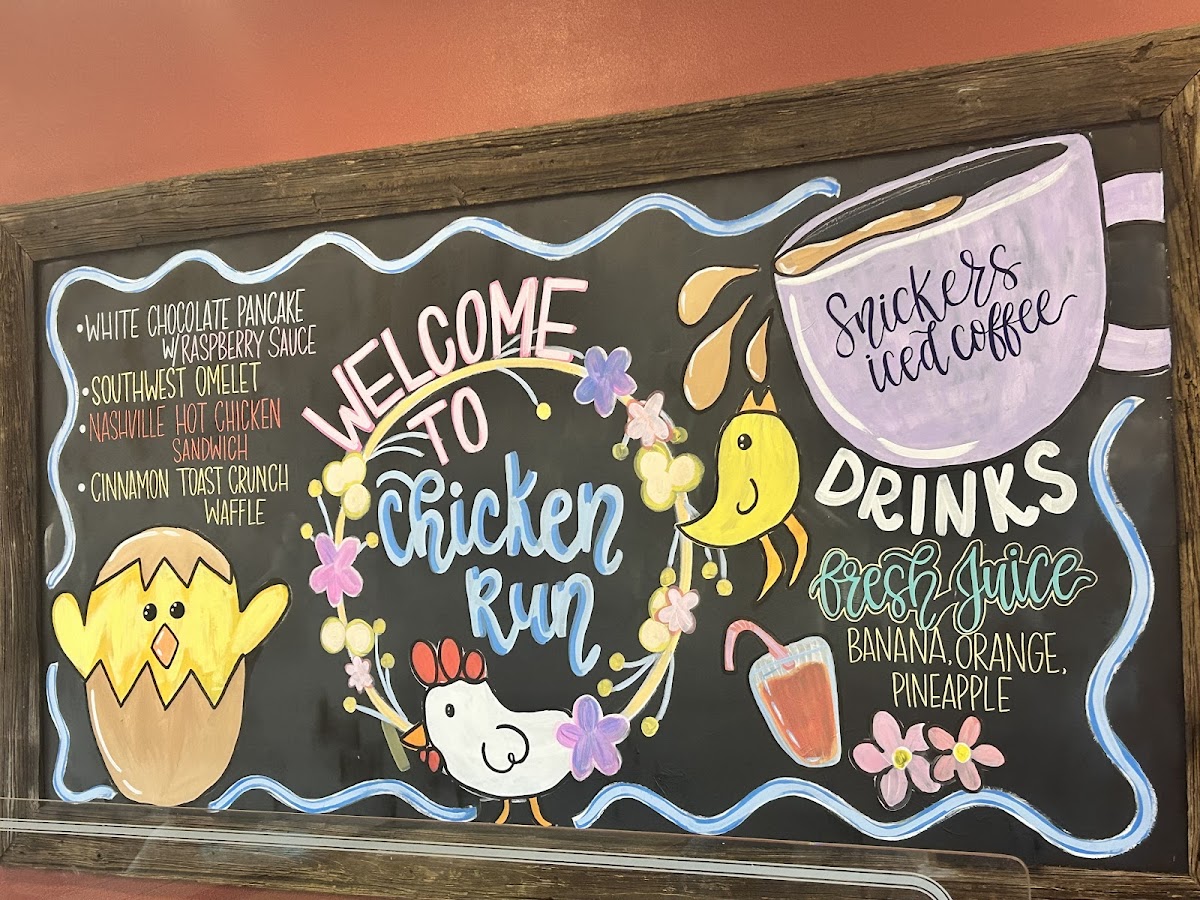 • WHITE CHOCOLATE PANCAKE
W/RASPBERRY SAUCE
• SOUTHWEST OMELET
• NASHVILLE HOT CHICKEN
SANDWICH
• CINNAMON TOAST CRUNCH
WAFFLE
WELCOME
TO
Chicken
Run
Snickers
iced coffee
DRINKS
fresh Juice
BANANA, ORANGE,
PINEAPPLE